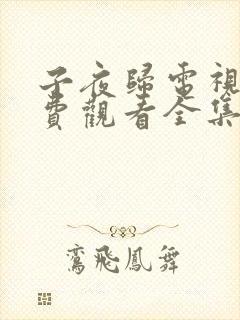 子夜歸電視
費觀看全集
鸞飛鳳舞